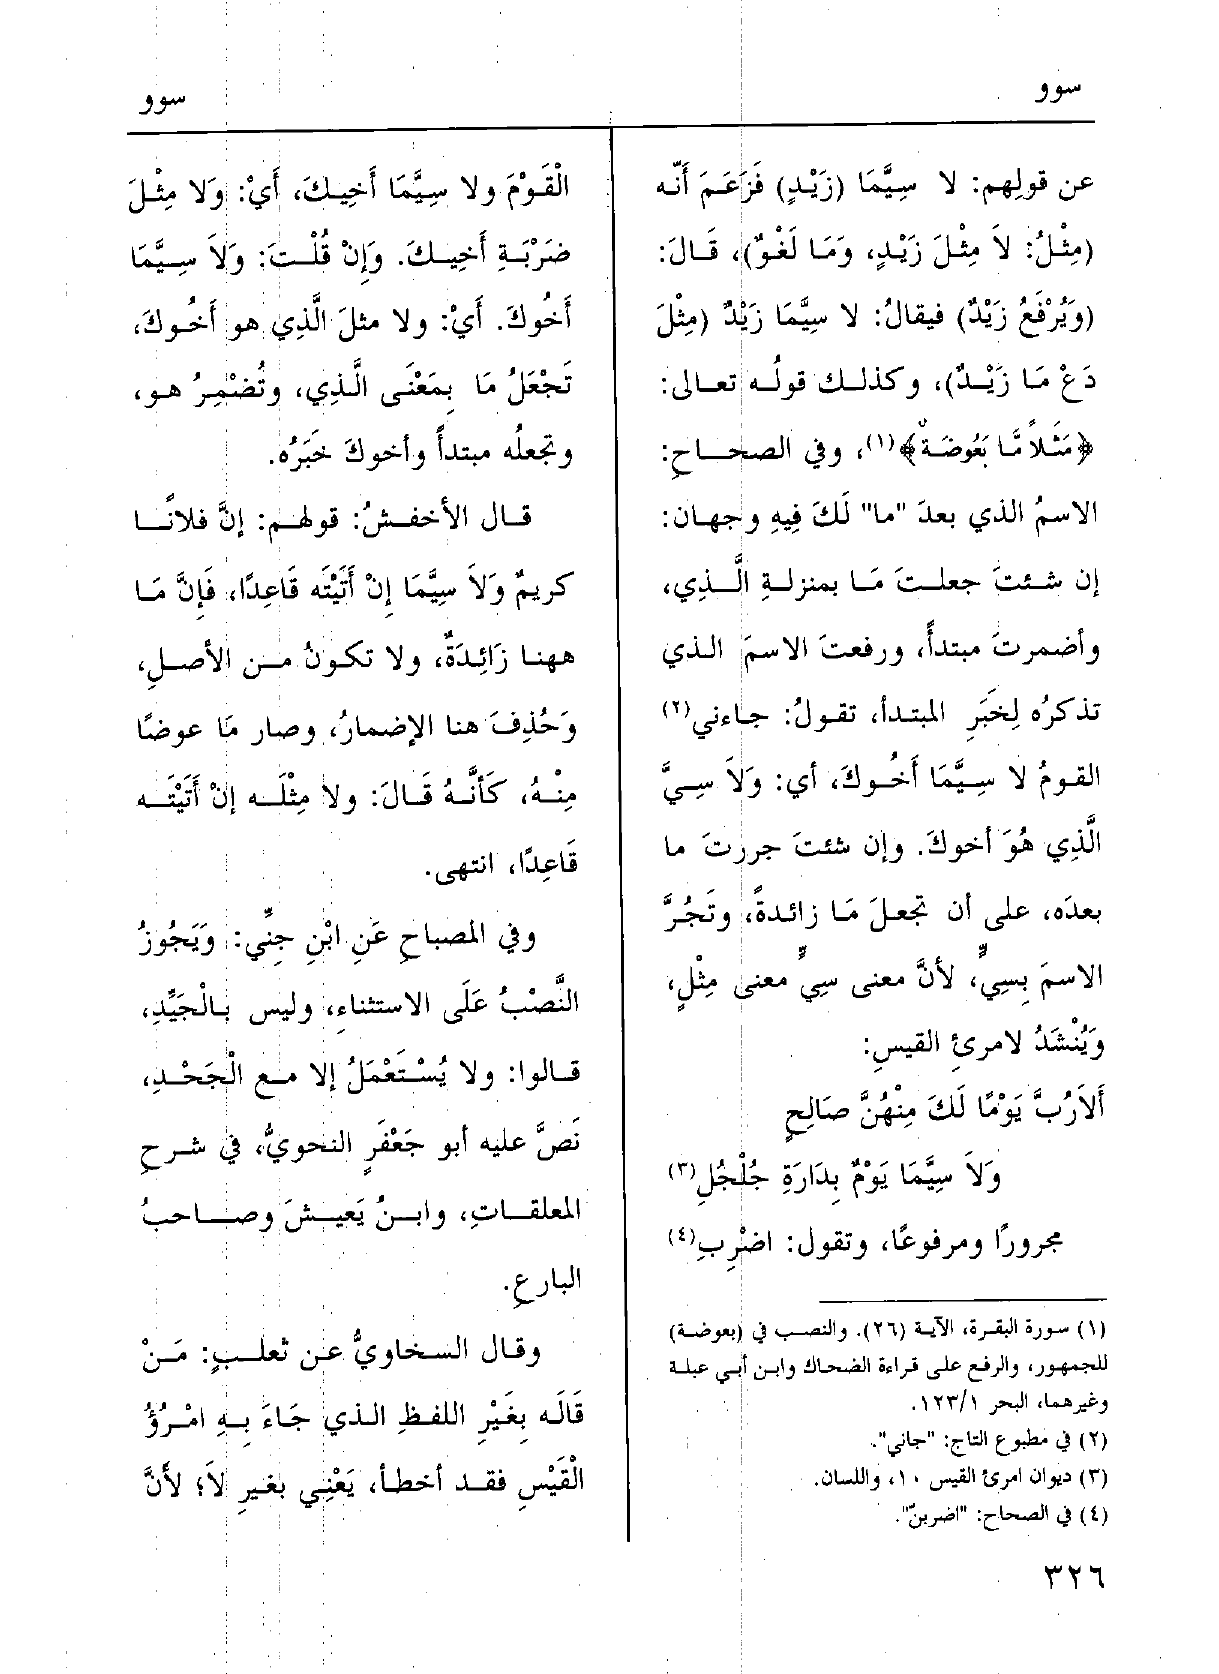 سوو
سوو
عن قولِهم: لا سِيَّمَا (زَيْدٍ) فَزَعَمَ أَنّه
(مِثْلُ: لاَ مِثْلَ زَيْدٍ، وَمَا لَغْوٌ)، قَالَ:
(وَيُرْفَعُ زَيْدٌ) فيقالُ: لا سِيَّمَا زَيْدٌ (مِثْلَ
دَعْ مَا زَيْدٌ)، وكذلك قولُه تعالى:
﴿مَثَلاً مَّا بَعُوضَةٌ﴾(١)، وفي الصحاحِ:
الاسمُ الذي بعدَ "ما" لَكَ فِيهِ وجهان:
إن شئتَ جعلتَ مَا بمنزلةِ الَّذي،
وأضمرتَ مبتدأً، ورفعتَ الاسمَ الذي
تذكرُه لِخَبَرِ المبتدأ، تقولُ: جاءني(٢)
القومُ لا سِيَّمَا أَخُوكَ، أي: وَلاَ سِيَّ
الَّذِي هُوَ أخوكَ. وإن شئتَ جررتَ ما
بعدَه، على أن تجعلَ مَا زائدةً، وتَجُرَّ
الاسمَ بِسِيٍّ، لأنَّ معنى سِيٍّ معنى مِثْلٍ،
وَيُنْشَدُ لامرئِ القيسِ:
أَلاَرُبَّ يَوْمًا لَكَ مِنْهُنَّ صَالِحٍ
وَلاَ سِيَّمَا يَوْمٌ بِدَارَةِ جُلْجُلِ(٣)
مجرورًا ومرفوعًا، وتقول: اضْرِبِ(٤)
(١) سورة البقرة، الآية (٢٦). والنصب في (بعوضة)
للجمهور، والرفع على قراءة الضحاك وابن أبي عبلة
وغيرهما، البحر ١٢٣/١.
(٢) في مطبوع التاج: "جاني".
(٣) ديوان امرئ القيس ١٠، واللسان.
(٤) في الصحاح: "اضربنّ".
٣٢٦
الْقَوْمَ ولا سِيَّمَا أَخِيكَ، أَيْ: وَلا مِثْلَ
ضَرْبَةِ أَخِيكَ. وَإِنْ قُلْتَ: وَلاَ سِيَّمَا
أَخُوكَ. أَيْ: ولا مثلَ الَّذِي هو أَخُوكَ،
تَجْعَلُ مَا بِمَعْنَى الَّذِي، وتُضْمِرُ هو،
وتجعلُه مبتدأً وأخوكَ خَبَرُه.
قال الأخفشُ: قولهم: إنَّ فلانًا
كريمٌ وَلاَ سِيَّمَا إِنْ أَتَيْتَه قَاعِدًا، فَإِنَّ مَا
ههنا زَائِدَةٌ، ولا تكونُ من الأصلِ،
وَحُذِفَ هنا الإضمارُ، وصار مَا عوضًا
مِنْهُ، كَأَنَّهُ قَالَ: ولا مِثْلَه إِنْ أَتَيْتَه
قَاعِدًا، انتهى.
وفي المصباحِ عَنِ ابْنِ جِنِّي: وَيَجُوزُ
النَّصْبُ عَلَى الاستثناءِ، وليس بالْجَيِّدِ،
قالوا: ولا يُسْتَعْمَلُ إلا مع الْجَحْدِ،
نَصَّ عليه أبو جَعْفَرٍ النحويُّ، في شرحِ
المعلقاتِ، وابنُ يَعيشَ وصاحبُ
البارعِ.
وقال السخاويُّ عن ثعلبٍ: مَنْ
قَالَه بِغَيْرِ اللفظِ الذي جَاءَ بِهِ امْرُؤُ
الْقَيْسِ فقد أخطأ، يَعْنِي بغيرِ لاَ؛ لأَنَّ